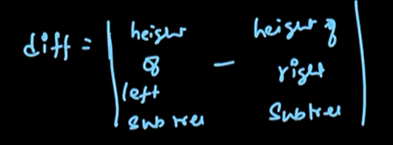 diff = | height of left subtree - height of right subtree |